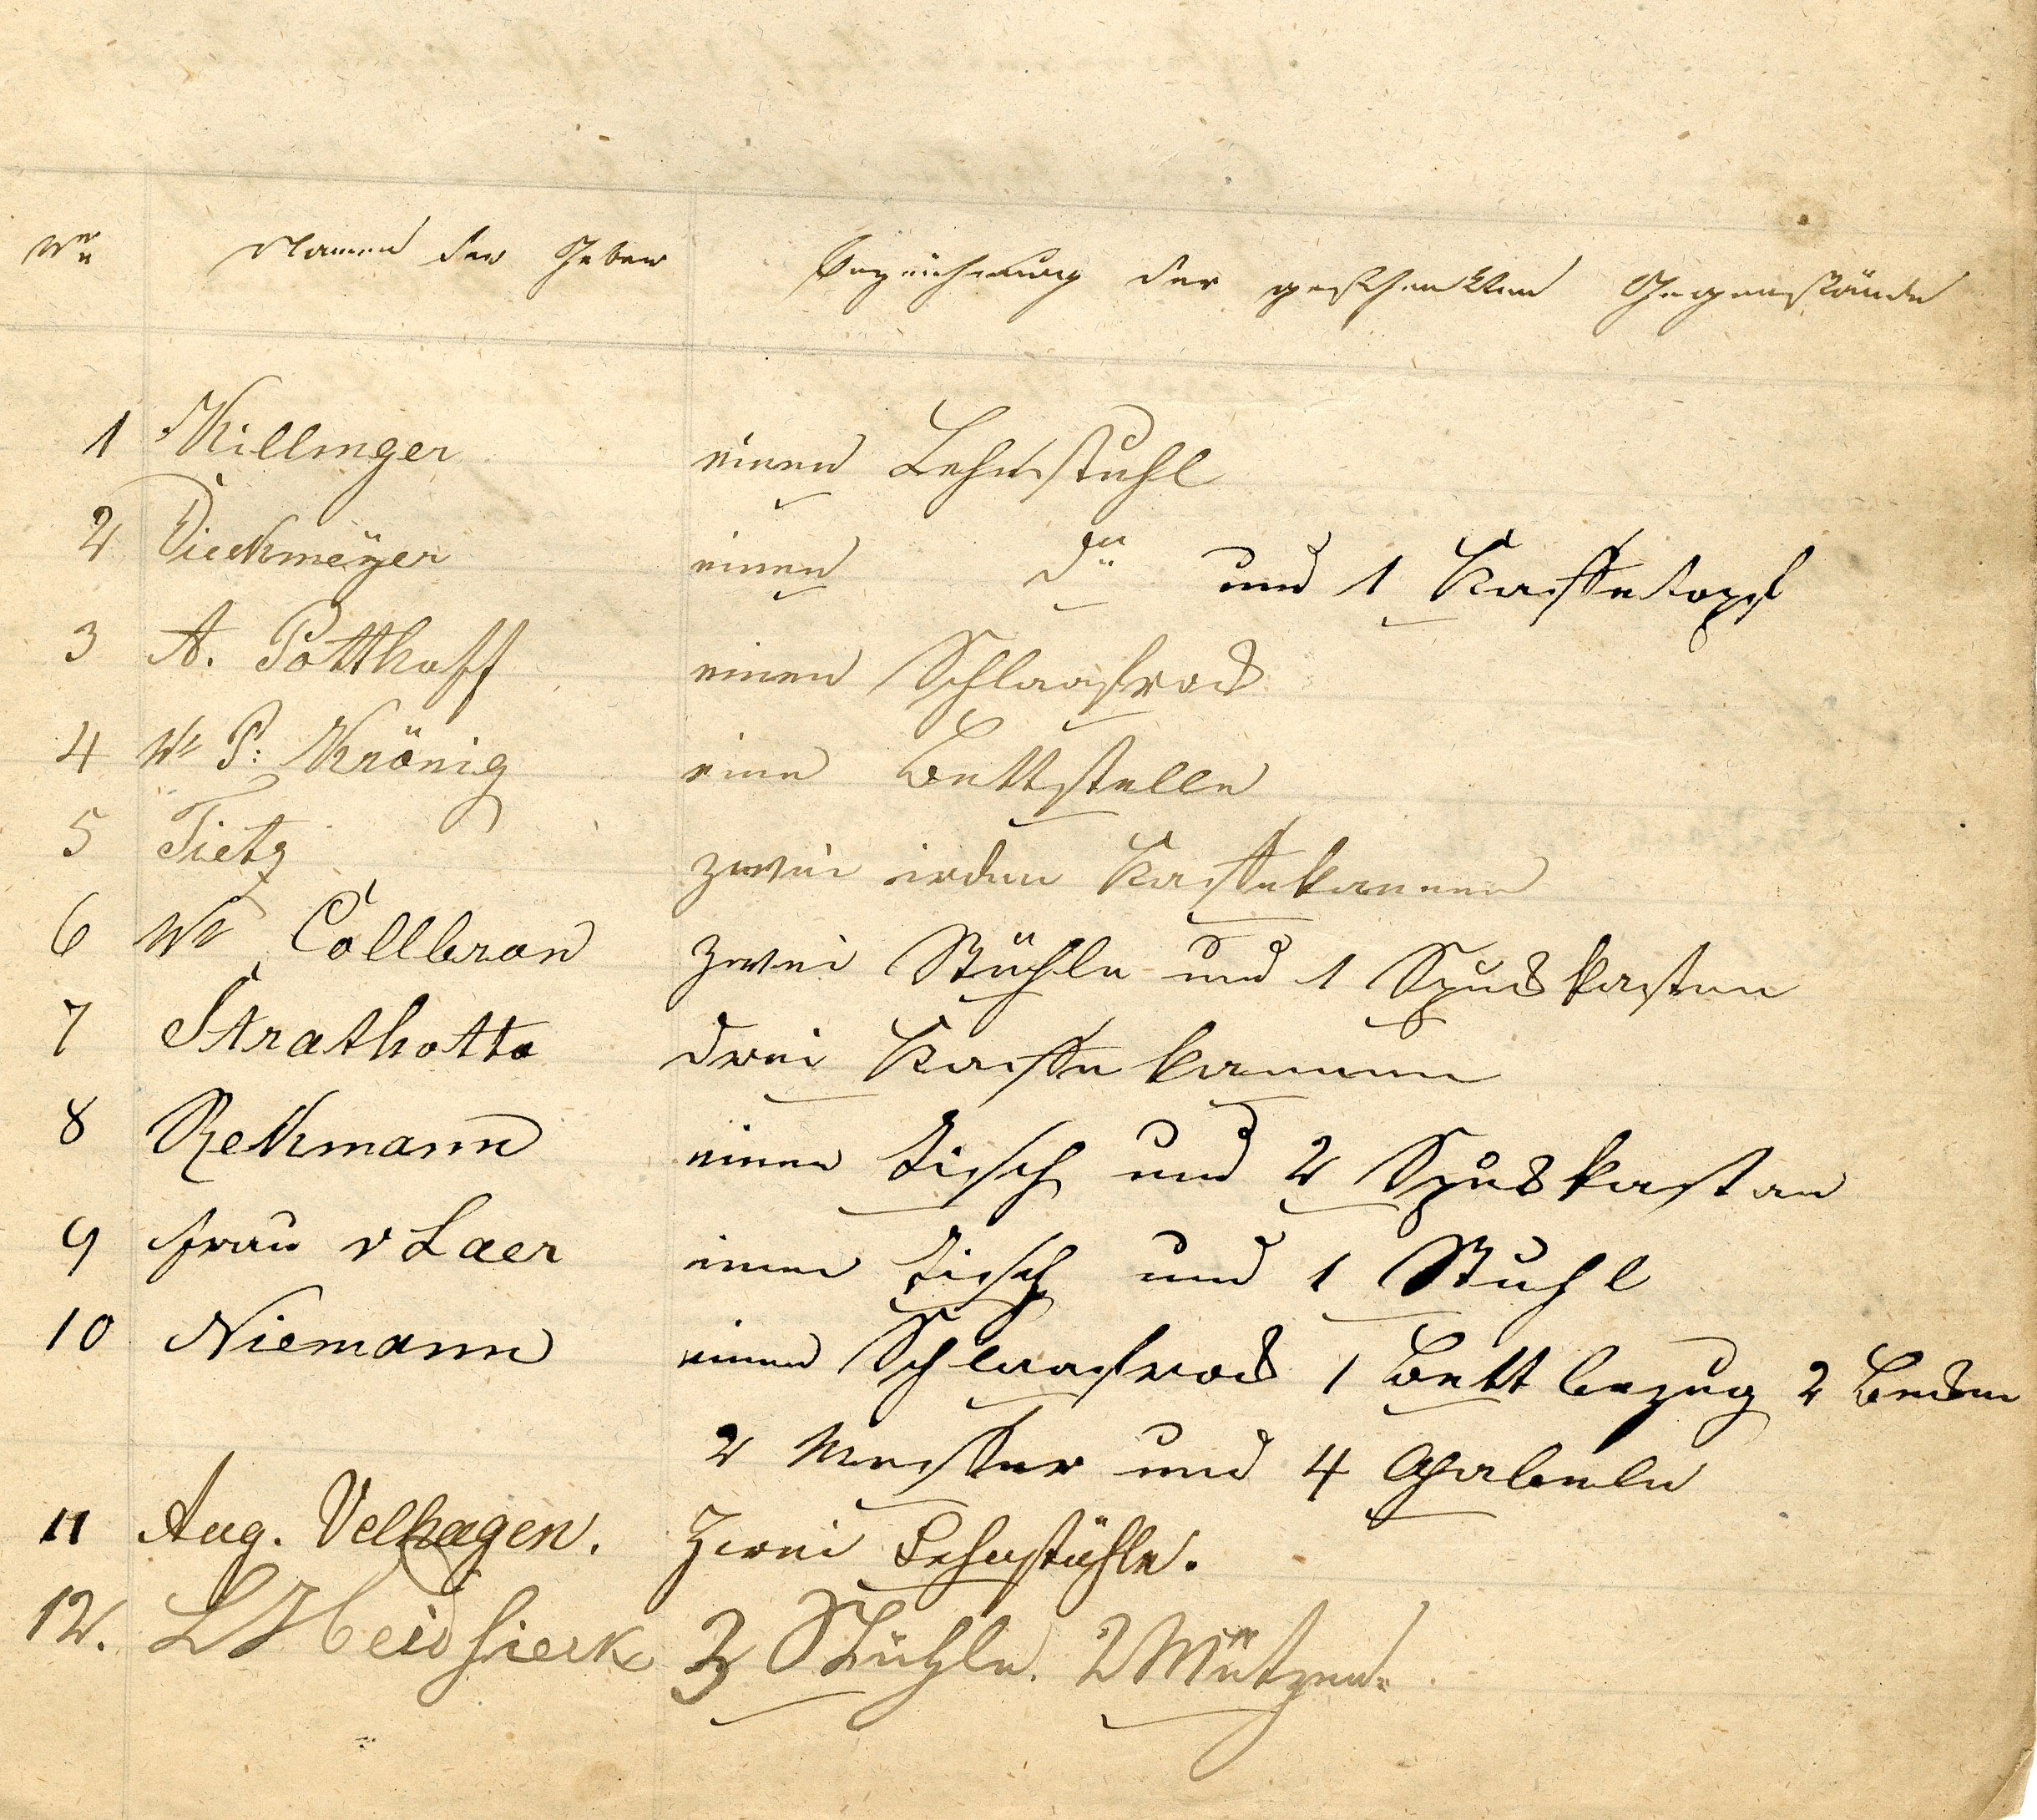 Nr Namen der Geber Bezeichnung der geschenkten Gegenstände
1 Killinger einen Lehnstuhl
2 Dieckmeÿer einen do und 1 Kaffetopf
3 A. Potthoff einen Schlaafrock
4 We P: Krönig eine Bettstelle
5 Tietz zwei irden Kaffekannen
6 We Collbron zwei Stühle und 1 Spuckkasten
7 Strathotte drei Kaffekannen
8 Rekmann einen Tisch und 2 Spuckkasten
9 Frau v Laer einen Tisch und 1 Stuhl
10 Niemann einen Schlaafrock 1 Bettbezug 2
2 Messer und 4 Gabeln
11 Aug. Velhagen. Zwei Lehnstühle.
12. Heidsieck 3 Stühle. 2 Mützen.